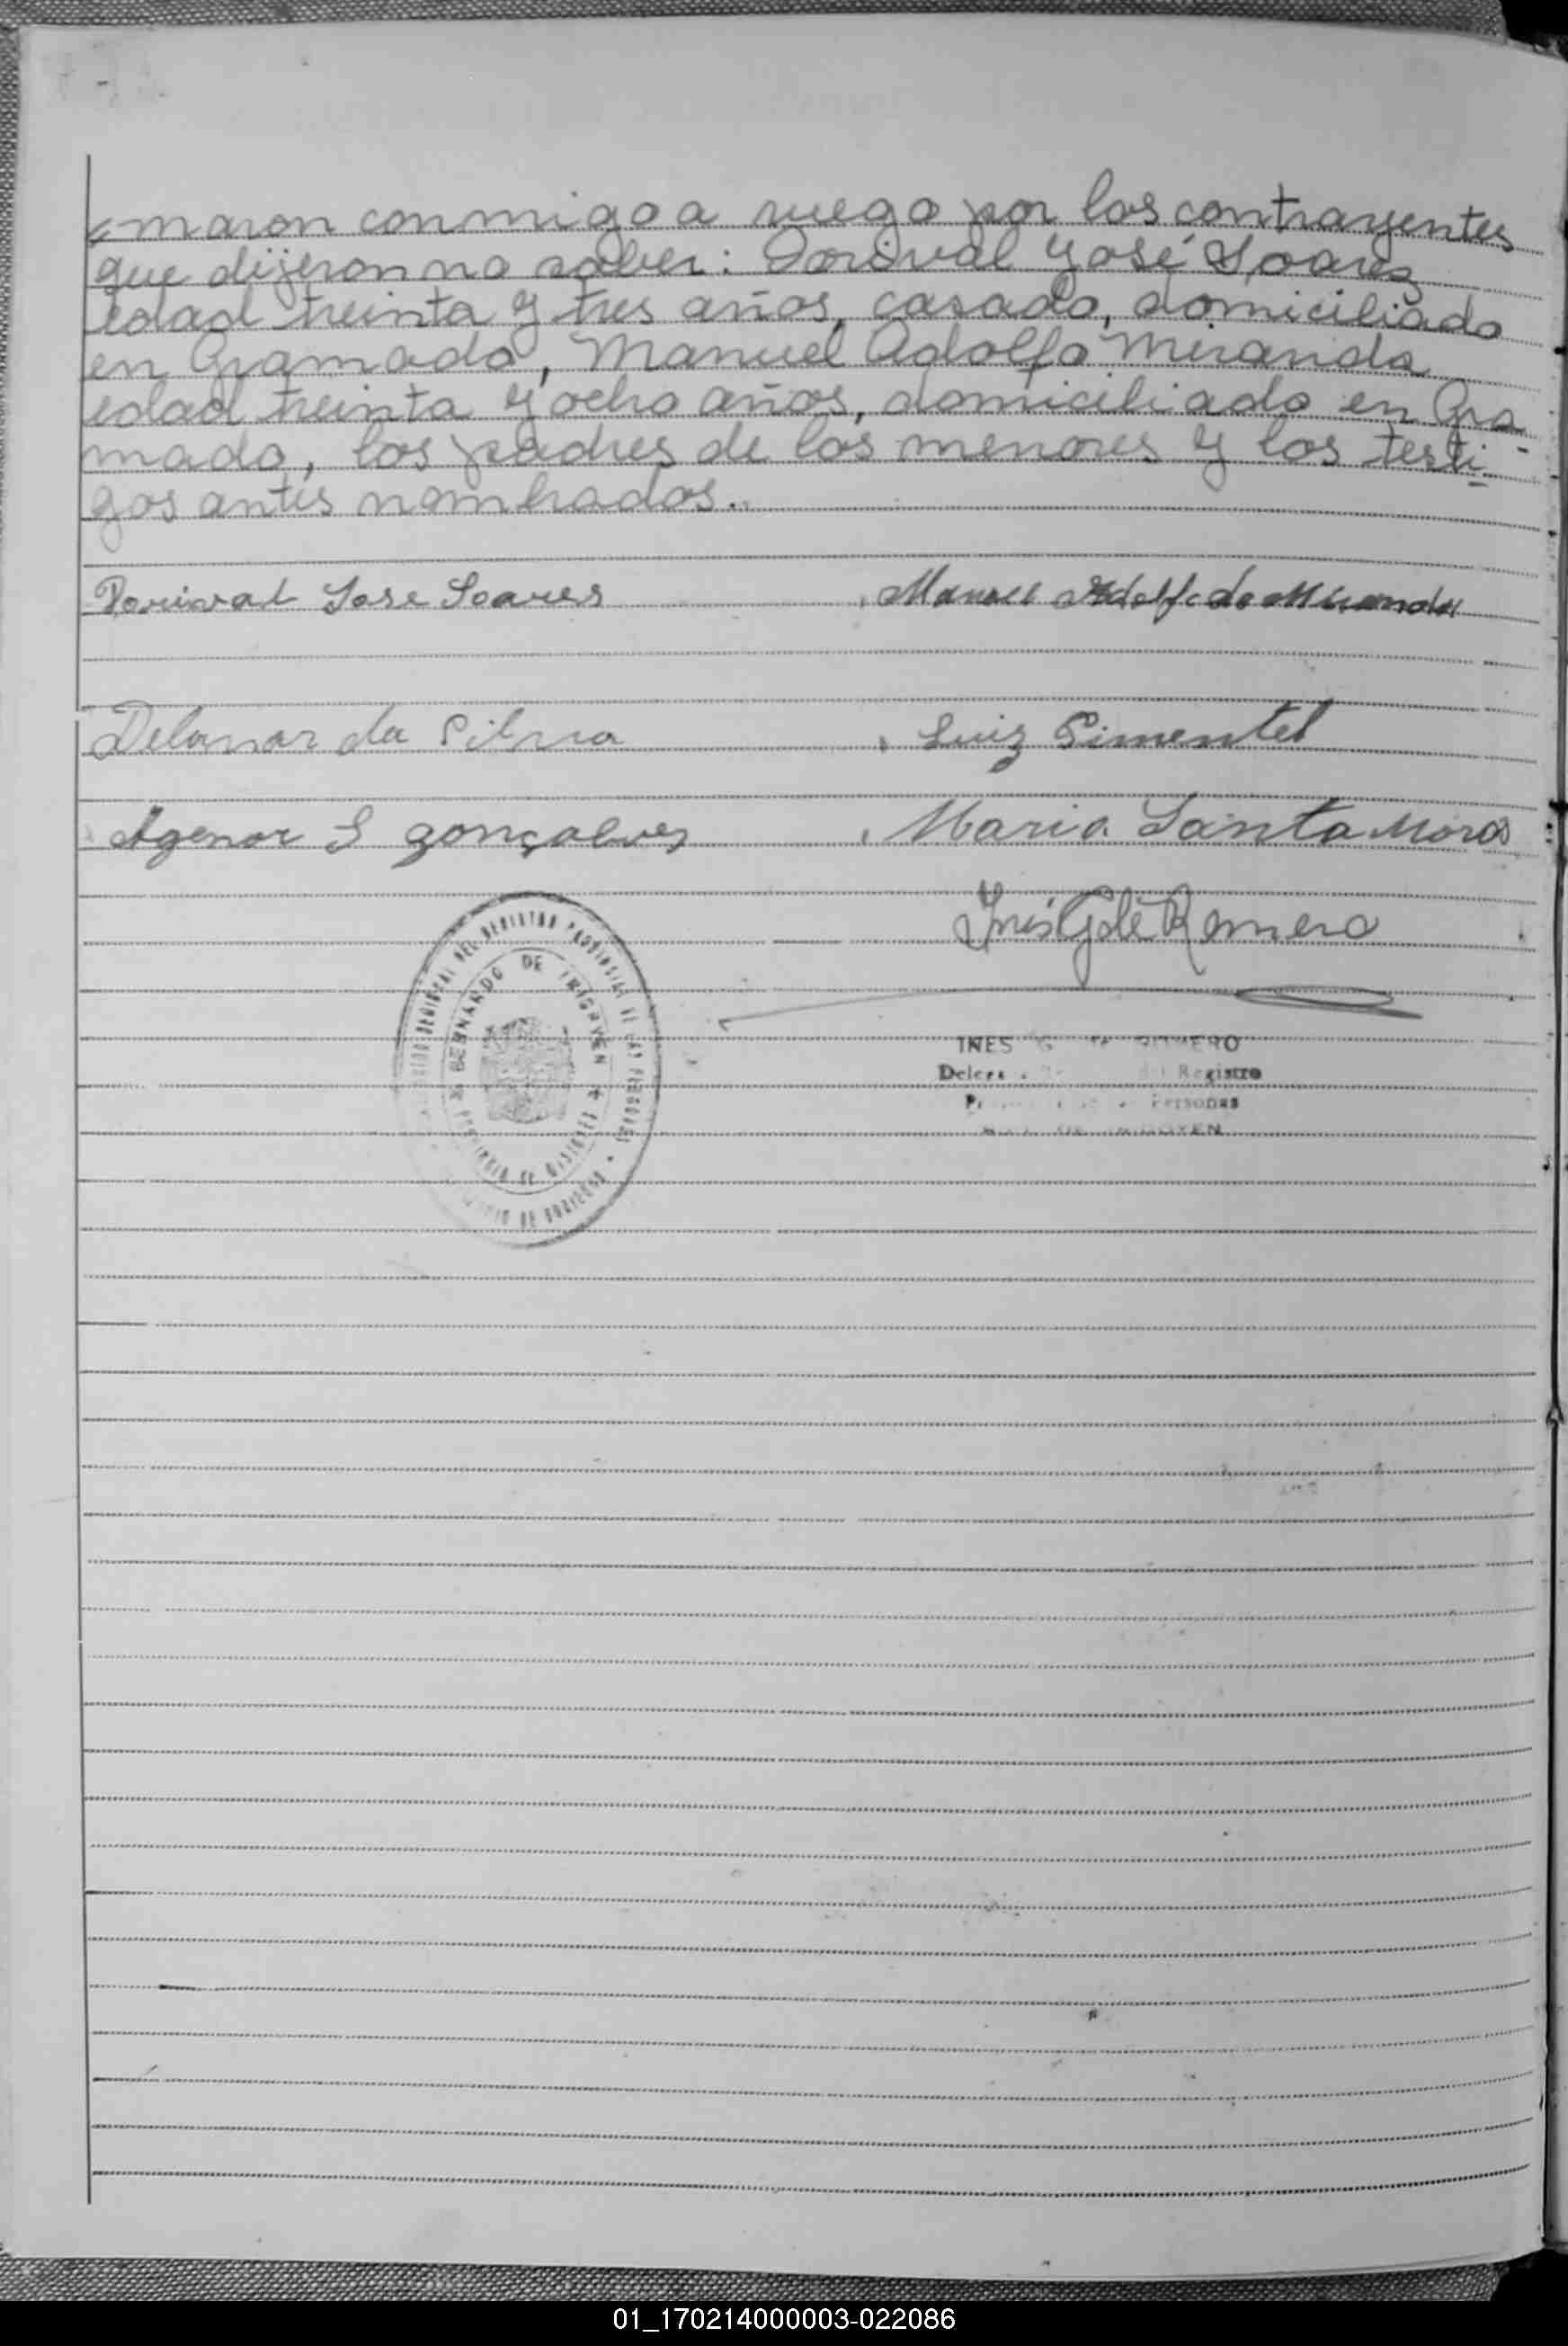 maron conmigo a ruego por los contrayentes
que dijeron no saber: Dorival José Soares
edad treinta y tres años, casado, domiciliado
en Gramado, Manuel Adolfo Miranda
edad treinta y ocho años, domiciliado en Gra
mado, los padres de los menores y los testi-
gos antes nombrados..
Dorival Jose Soares
Manoel Adolfo de Miranda
da Silva
Luiz Pimentel
Agenor S gonçalves
Maria Santa Mora
Inés G de Romero
DE
BERNARDO DE IRIGOYEN
INES G ROMERO
Registro
Personas